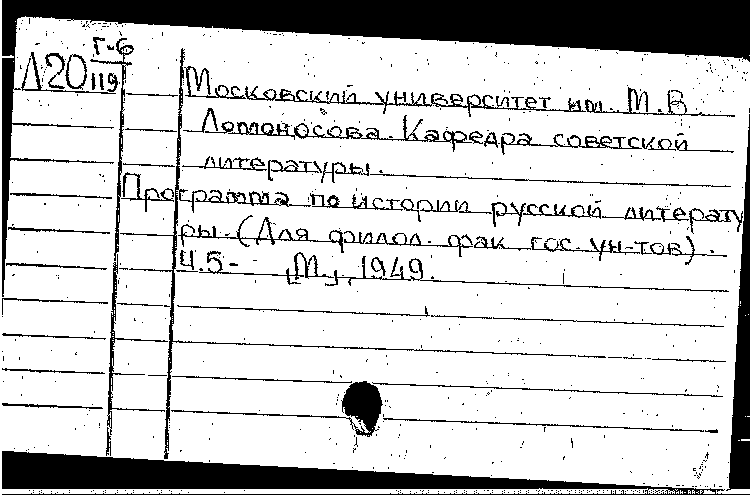 Г-6
Л20 119
Московский университет им. М.В.
Ломоносова. Кафедра советской
литературы.
Программа по истории русской литерату
ры. (Для филол. фак. гос. ун-тов).
Ч.5- М., 1949.